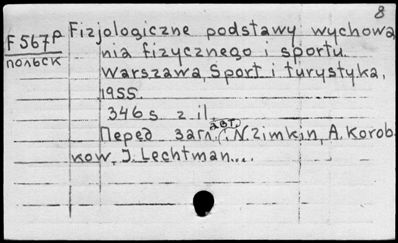 8
F567P Fizjologiczne podstawy wychowa
польск nia fizycznego i sportu.
Warszawa, Sport i turystyka,
1955
346 s z il.
Перед загл. авт.: N. Zimkin, A. Korob
kow, J. Lechtman....